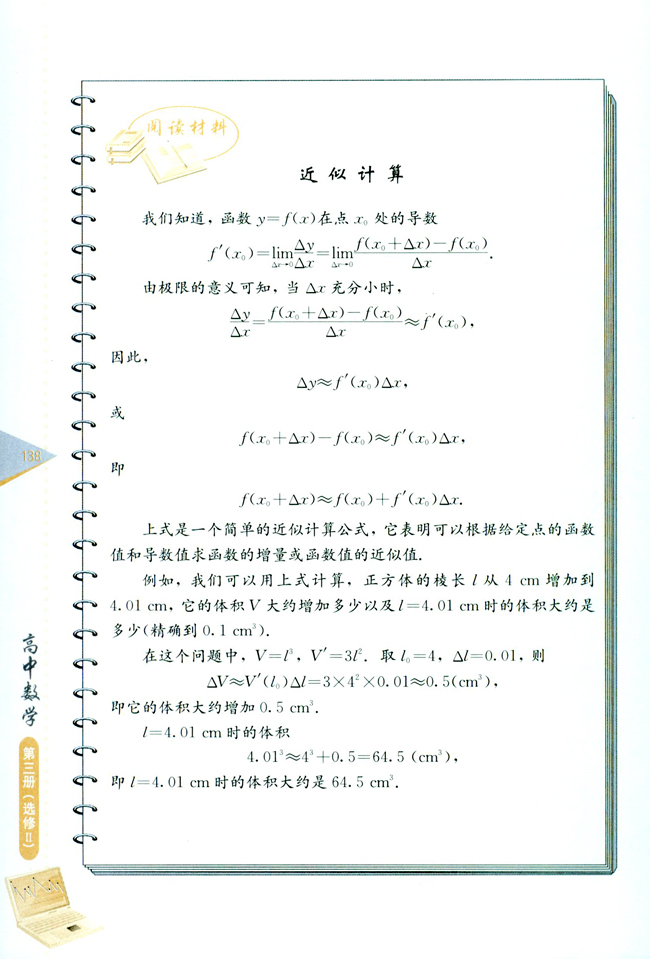 阅读材料
近似计算
我们知道，函数 y=f(x)在点 x₀ 处的导数
f′(x₀)=lim_{Δx→0} Δy/Δx=lim_{Δx→0} (f(x₀+Δx)-f(x₀))/Δx.
由极限的意义可知，当 Δx 充分小时，
Δy/Δx=(f(x₀+Δx)-f(x₀))/Δx≈f′(x₀)，
因此，
Δy≈f′(x₀)Δx，
或
f(x₀+Δx)-f(x₀)≈f′(x₀)Δx，
即
f(x₀+Δx)≈f(x₀)+f′(x₀)Δx.
上式是一个简单的近似计算公式，它表明可以根据给定点的函数
值和导数值求函数的增量或函数值的近似值.
例如，我们可以用上式计算，正方体的棱长 l 从 4 cm 增加到
4.01 cm，它的体积 V 大约增加多少以及 l=4.01 cm 时的体积大约是
多少(精确到 0.1 cm³).
在这个问题中，V=l³，V′=3l². 取 l₀=4，Δl=0.01，则
ΔV≈V′(l₀)Δl=3×4²×0.01≈0.5(cm³)，
即它的体积大约增加 0.5 cm³.
l=4.01 cm 时的体积
4.01³≈4³+0.5=64.5 (cm³)，
即 l=4.01 cm 时的体积大约是 64.5 cm³.
138
高中数学
第三册(选修Ⅱ)